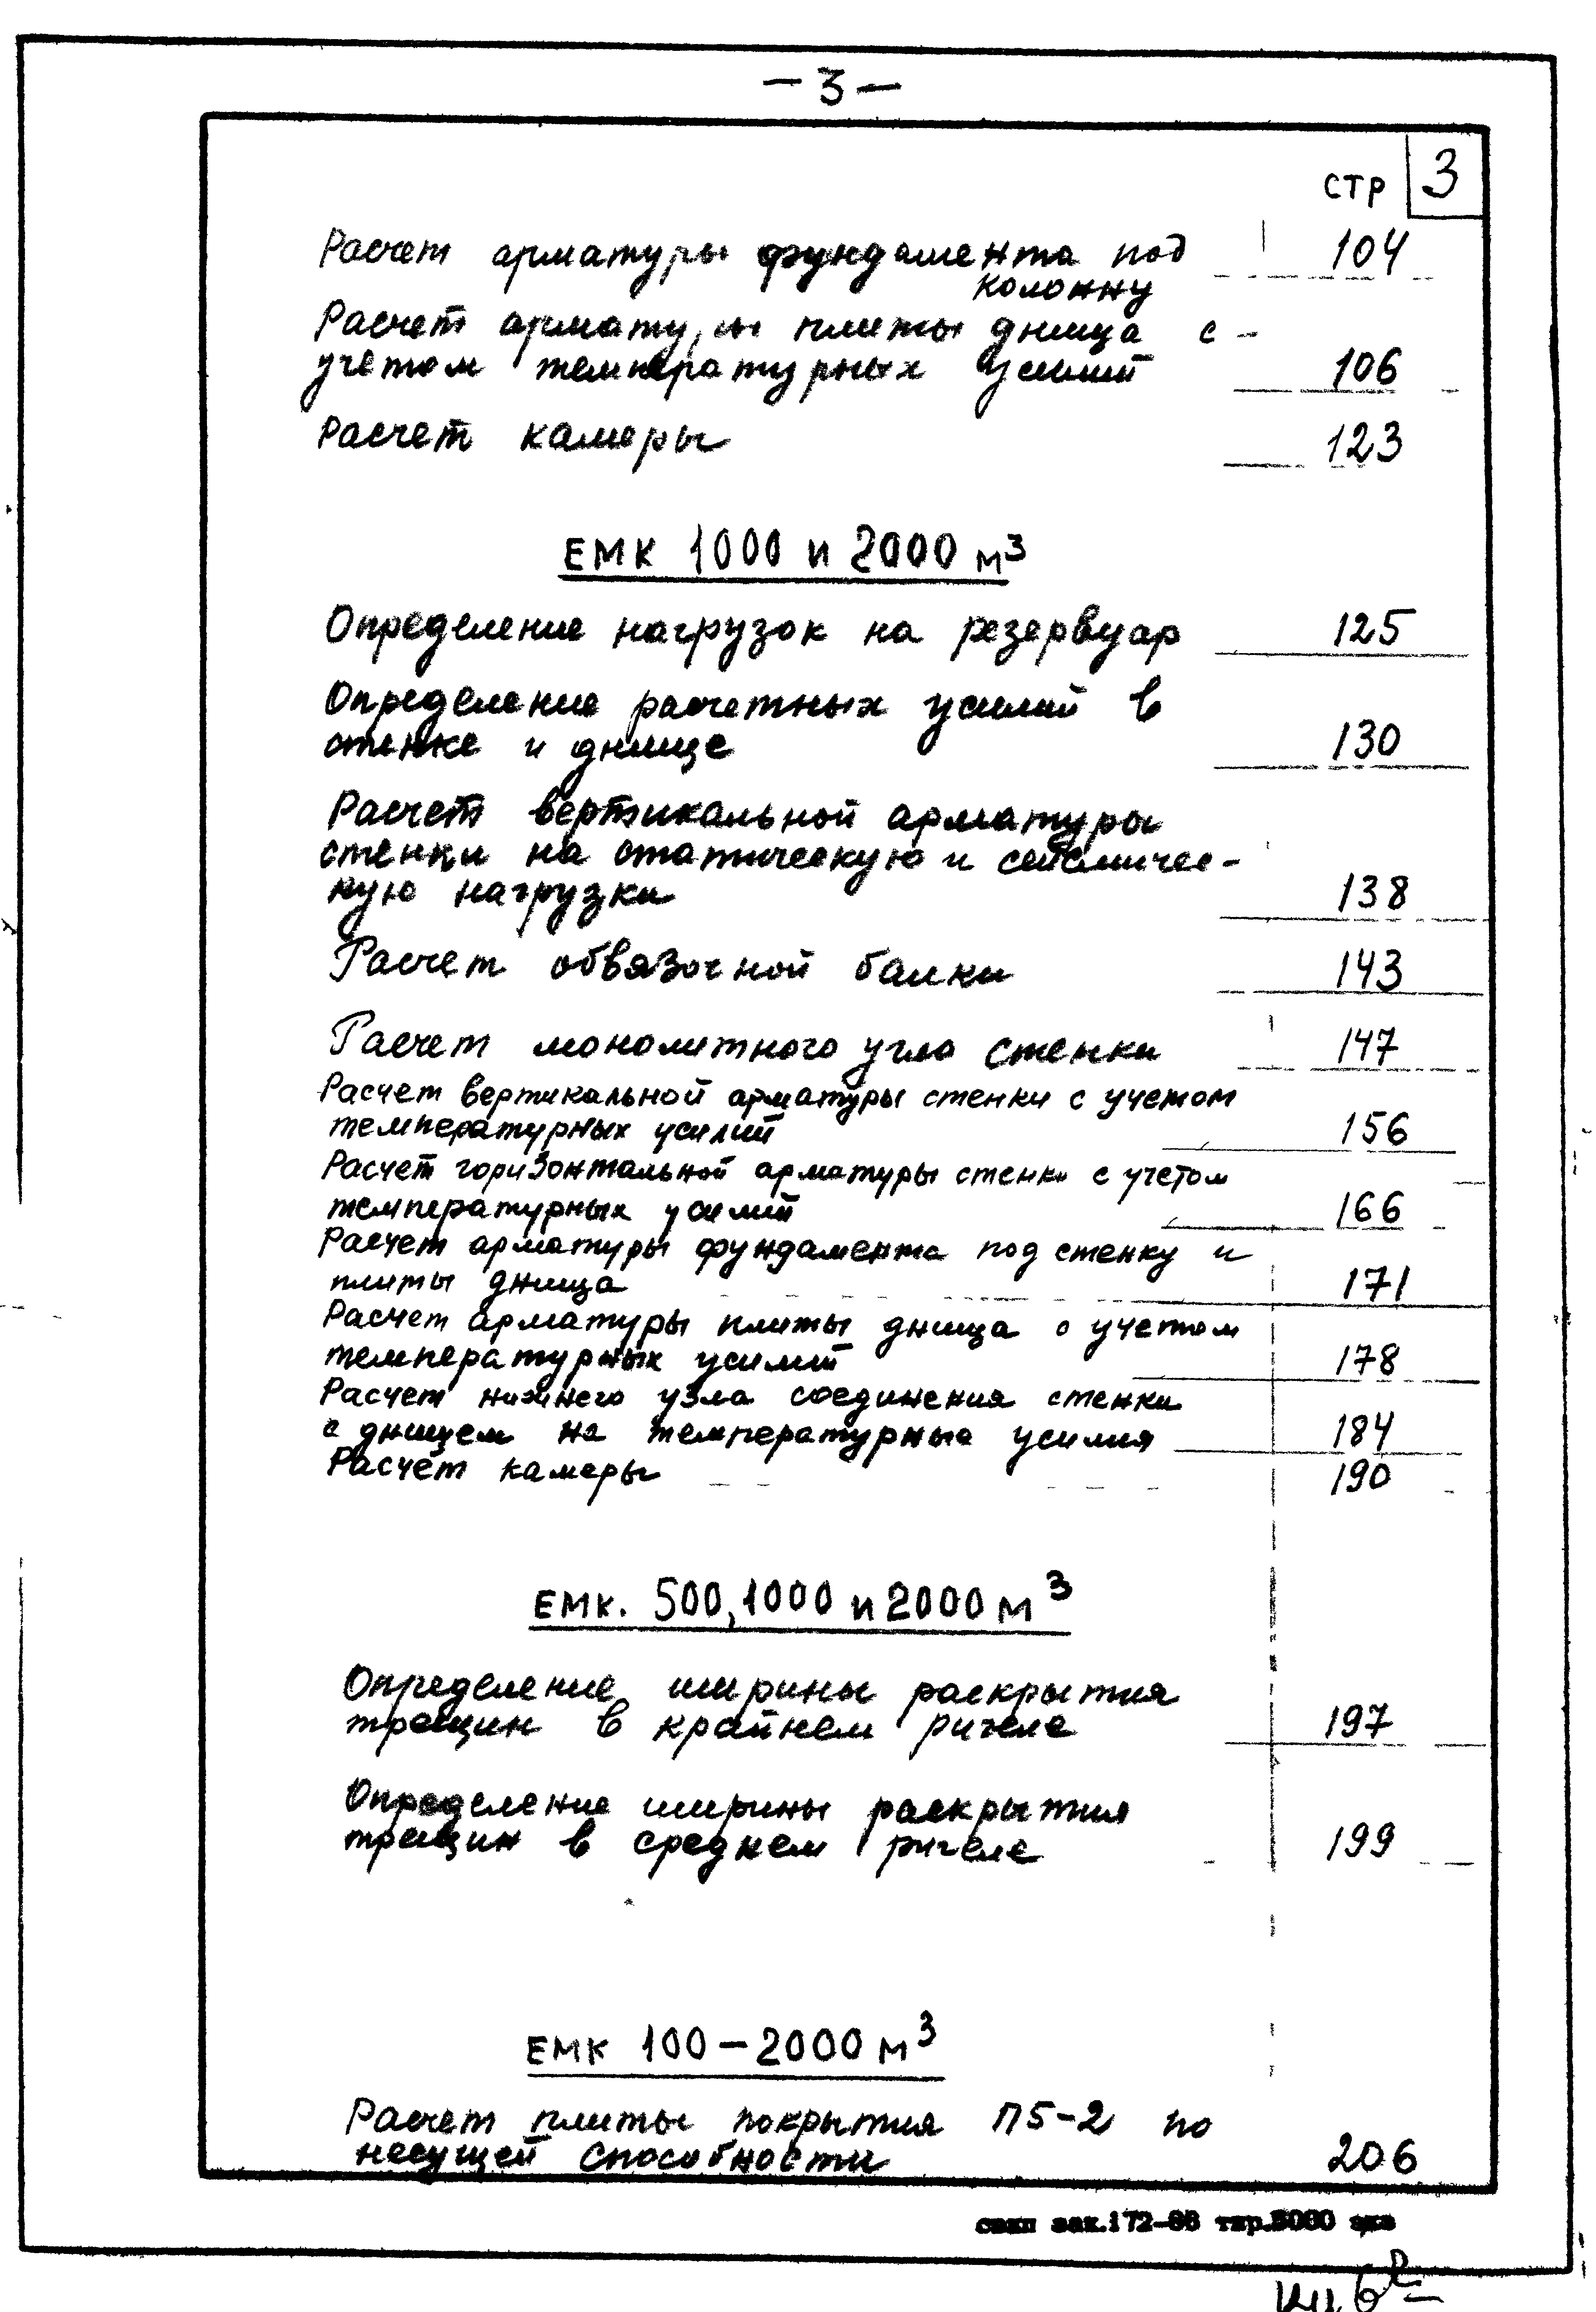 — 3 —
стр 3
Расчет арматуры фундамента под 104
колонну
Расчет арматуры плиты днища с
учетом температурных усилий 106
Расчет камеры 123
ЕМК 1000 и 2000 м³
Определение нагрузок на резервуар 125
Определение расчетных усилий в
стенке и днище 130
Расчет вертикальной арматуры
стенки на статическую и сейсмичес-
кую нагрузки 138
Расчет обвязочной балки 143
Расчет монолитного угла стенки 147
Расчет вертикальной арматуры стенки с учетом
температурных усилий 156
Расчет горизонтальной арматуры стенки с учетом
температурных усилий 166
Расчет арматуры фундамента под стенку и
плиты днища 171
Расчет арматуры плиты днища с учетом
температурных усилий 178
Расчет нижнего узла соединения стенки
с днищем на температурные усилия 184
Расчет камеры 190
ЕМК. 500, 1000 и 2000 м³
Определение ширины раскрытия
трещин в крайнем ригеле 197
Определение ширины раскрытия
трещин в среднем ригеле 199
ЕМК 100 – 2000 м³
Расчет плиты покрытия П5-2 по
несущей способности 206
зак.172-86 тир.